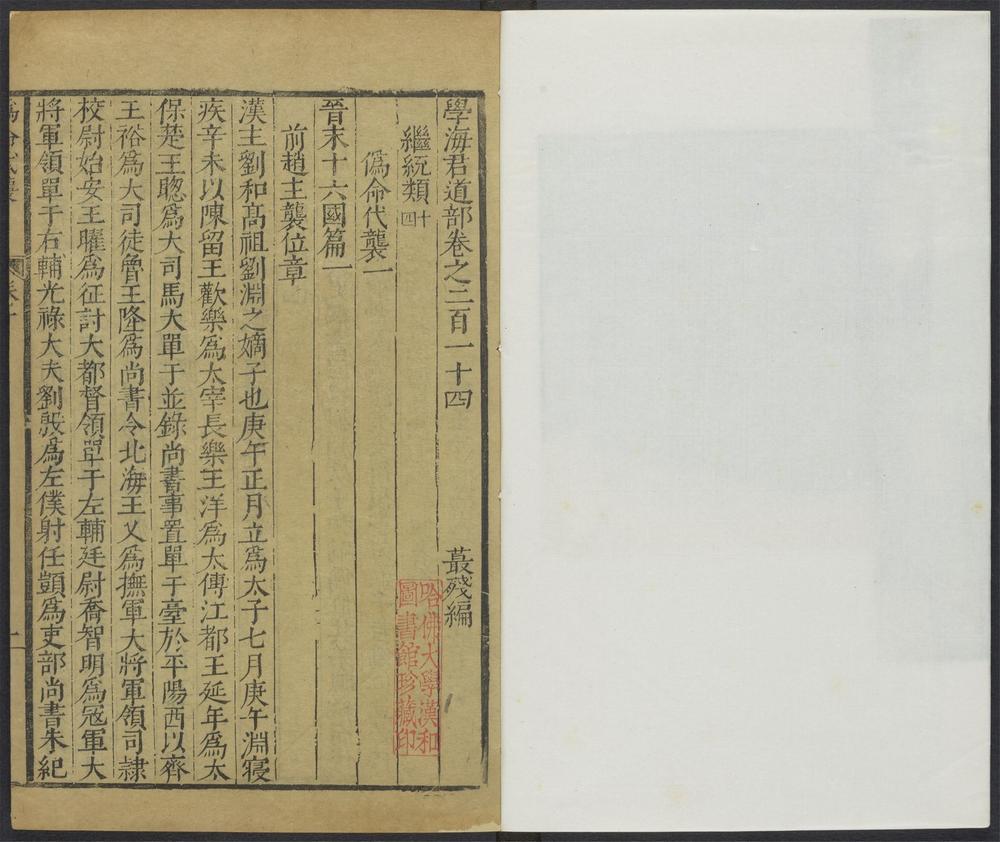 學海君道部卷之二百一十四 蕞殘編
繼統類 十四
僞命代襲一
晉末十六國篇一
前趙主襲位章
漢主劉和髙祖劉淵之嫡子也庚午正月立爲太子七月庚午淵寢
疾辛未以陳留王歡樂爲太宰長樂王洋爲太傅江都王延年爲太
保楚王聦爲大司馬大單于並錄尚書事置單于臺於平陽西以齊
王裕爲大司徒魯王隆爲尚書令北海王乂爲撫軍大將軍領司隷
校尉始安王曜爲征討大都督領單于左輔廷尉喬智明爲冦軍大
將軍領單于右輔光祿大夫劉殷爲左僕射任顗爲吏部尚書朱紀
哈佛大學漢和
圖書館珍藏印